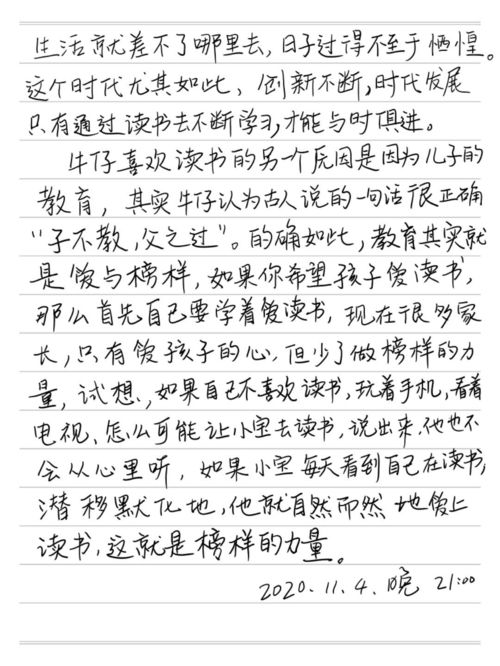 生活就差不了哪里去,日子过得不至于恓惶。
这个时代尤其如此、创新不断,时代发展
只有通过读书去不断学习,才能与时俱进。
牛仔喜欢读书的另一个原因是因为儿子的
教育，其实牛仔认为古人说的一句话很正确
“子不教,父之过”。的确如此,教育其实就
是爱与榜样,如果你希望孩子爱读书,
那么首先自己要学着爱读书,现在很多家
长,只有爱孩子的心,但少了做榜样的力
量,试想,如果自己不喜欢读书,玩着手机,看着
电视、怎么可能让小宝去读书,说出来,他也不
会从心里听，如果小宝每天看到自己在读书,
潜移默化地,他就自然而然地爱上
读书,这就是榜样的力量。
2020.11.4.晚 21:00